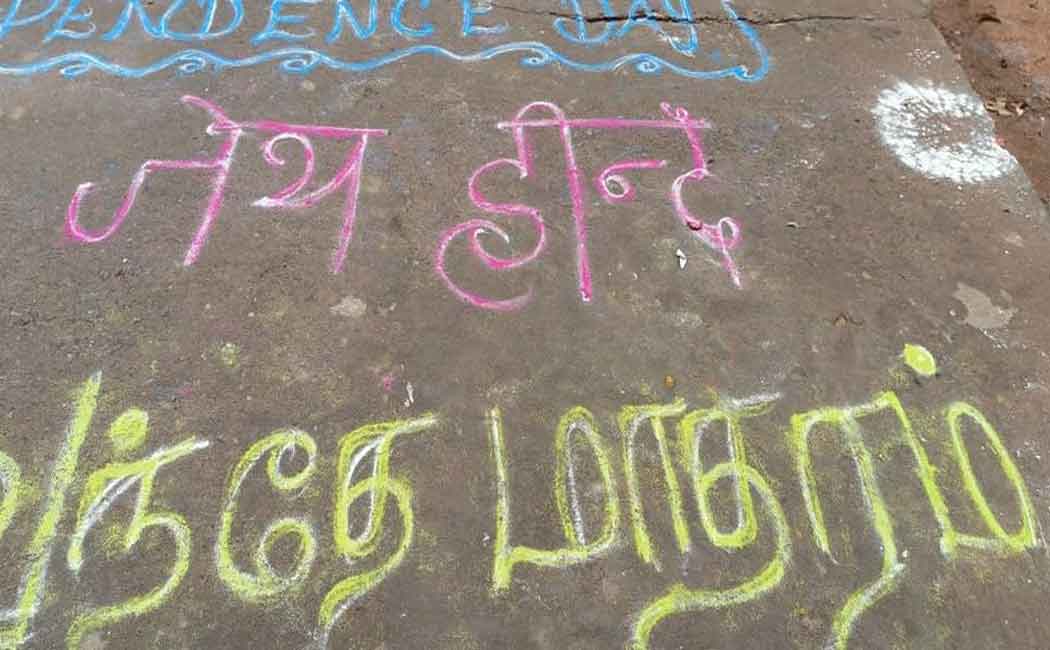 PENDENCE DAY
जेय हीन्द
வந்தே மாதரம்